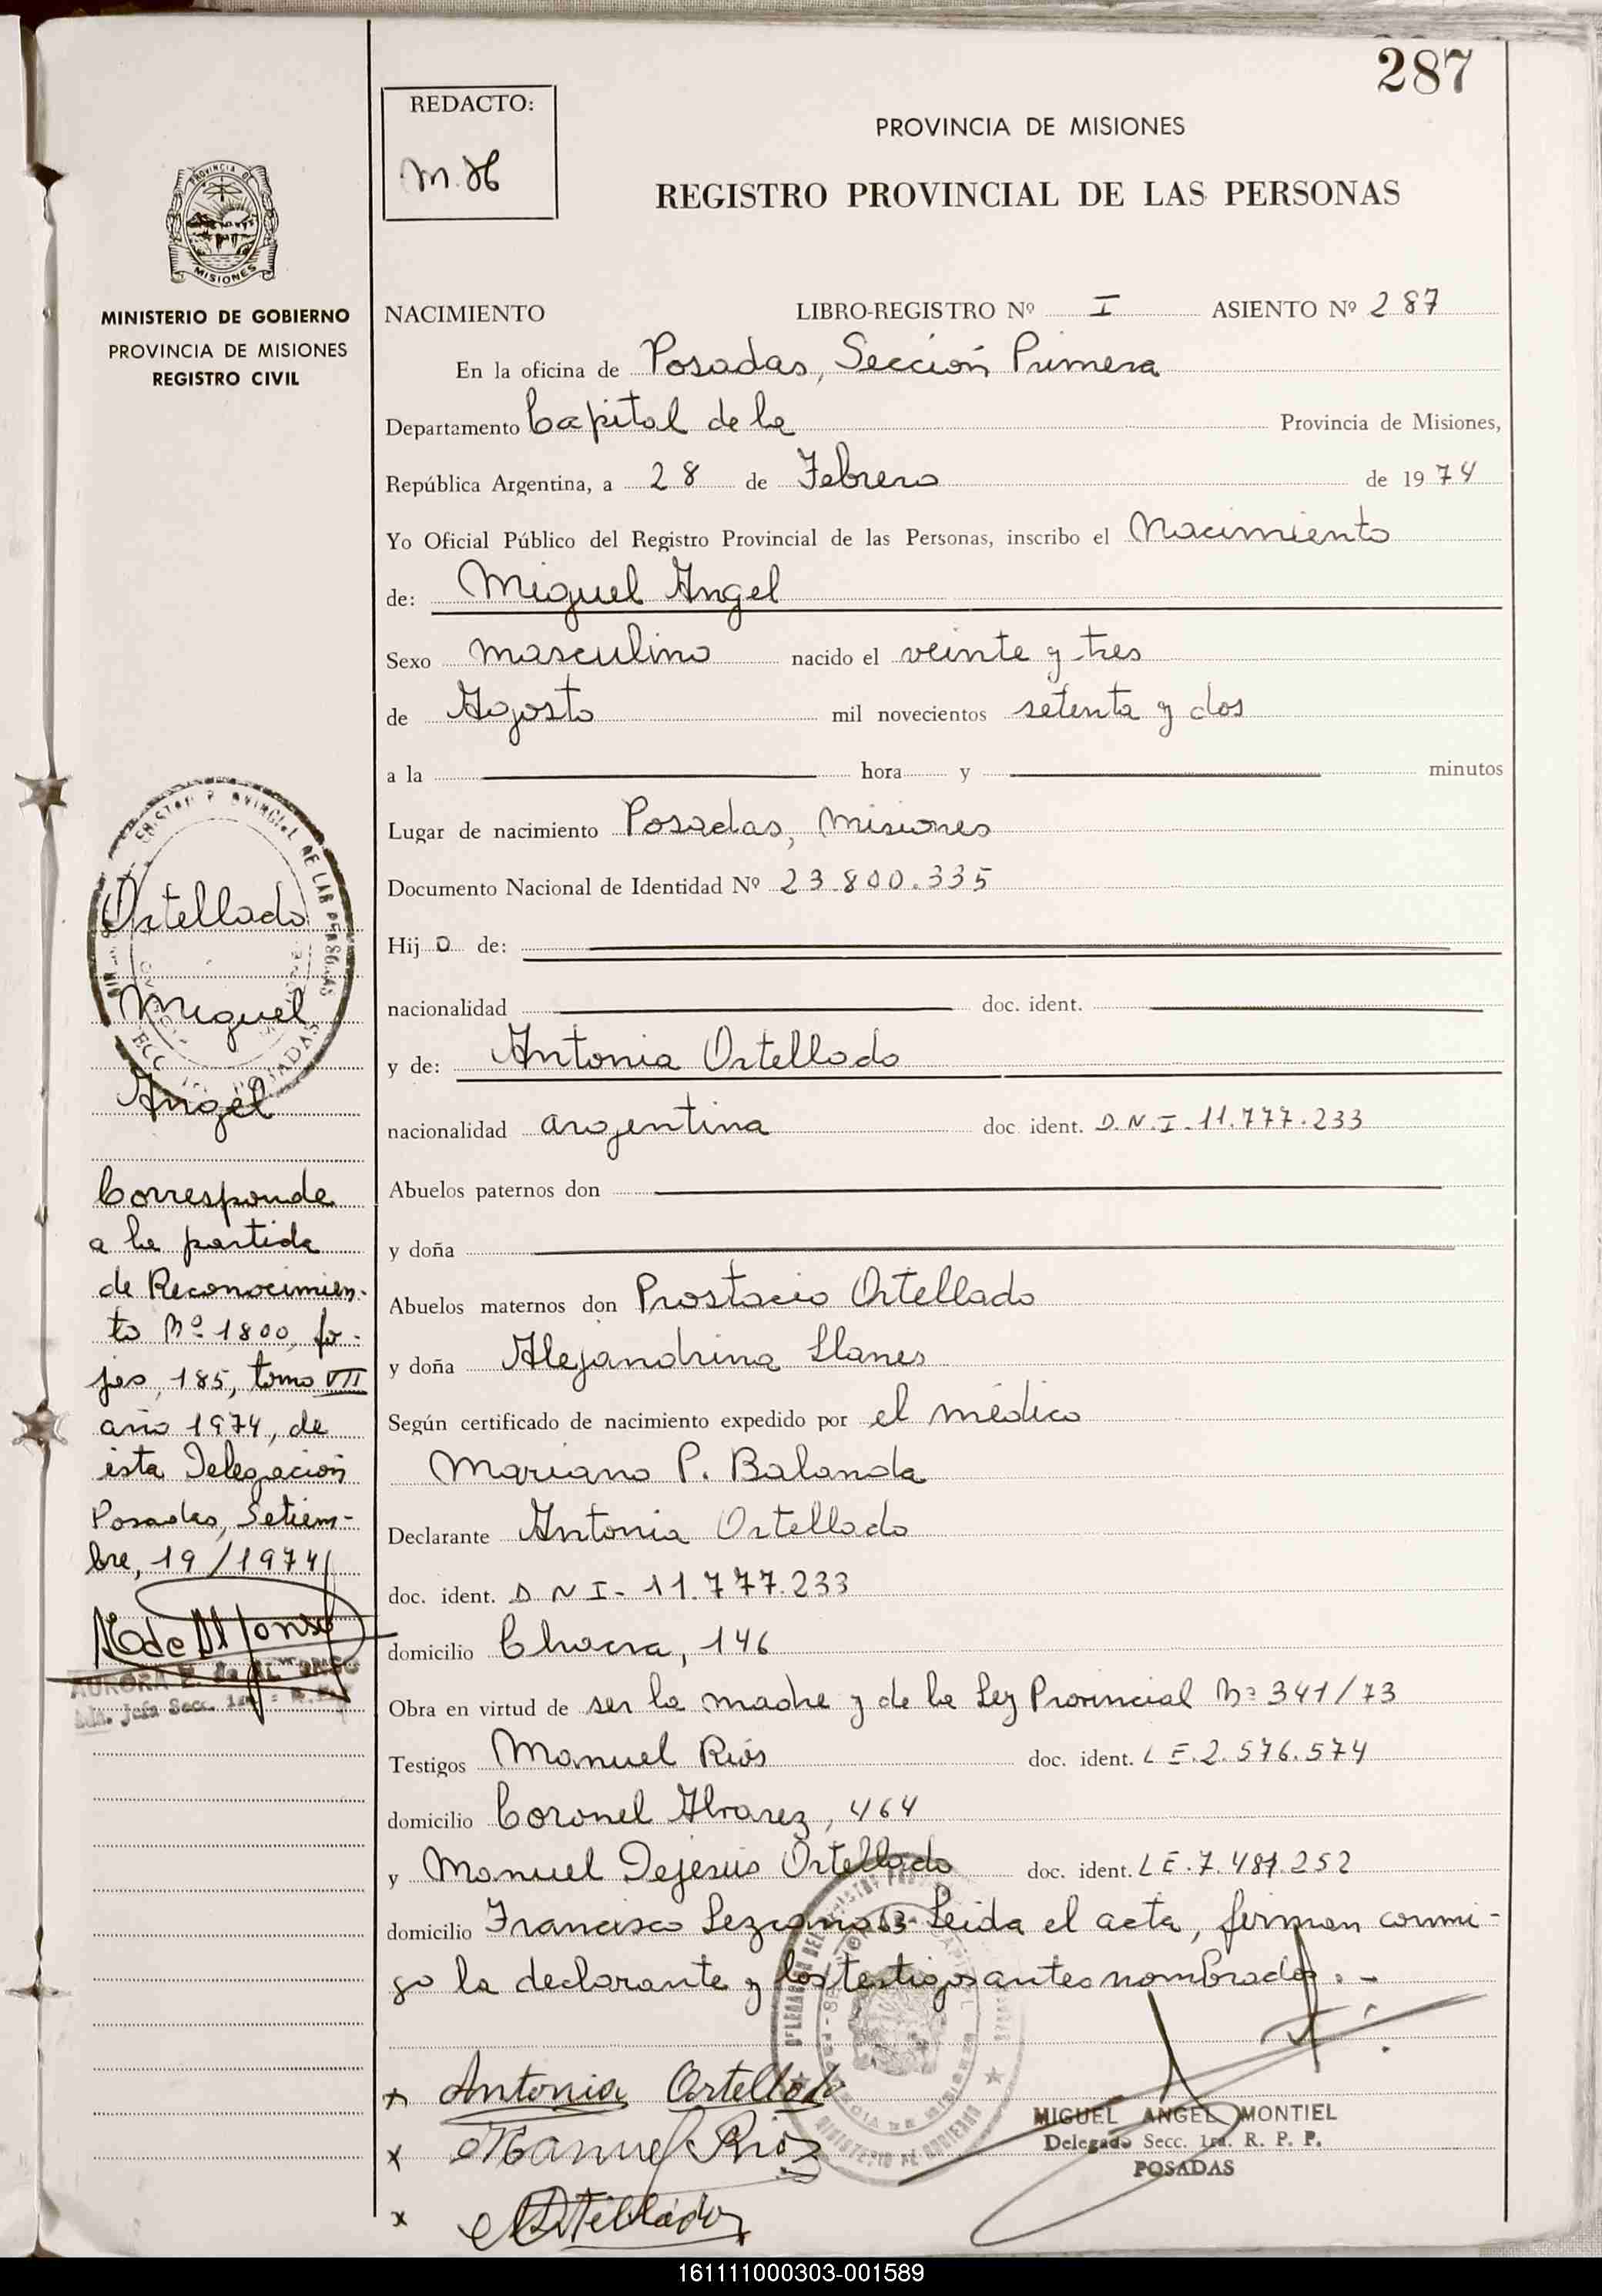 287
REDACTO:
M.H
PROVINCIA DE MISIONES
REGISTRO PROVINCIAL DE LAS PERSONAS
MINISTERIO DE GOBIERNO
PROVINCIA DE MISIONES
REGISTRO CIVIL
NACIMIENTO LIBRO-REGISTRO Nº I ASIENTO Nº 287
En la oficina de Posadas, Sección Primera
Departamento Capital de la Provincia de Misiones,
República Argentina, a 28 de Febrero de 1974
Yo Oficial Público del Registro Provincial de las Personas, inscribo el Nacimiento
de: Miguel Angel
Sexo masculino nacido el veinte y tres
de Agosto mil novecientos setenta y dos
a la hora y minutos
Lugar de nacimiento Posadas, Misiones
Documento Nacional de Identidad Nº 23.800.335
Hij o de:
nacionalidad doc. ident.
y de: Antonia Ortellado
nacionalidad argentina doc. ident. D.N.I. 11.777.233
Abuelos paternos don
y doña
Abuelos maternos don Prostacio Ortellado
y doña Alejandrina Llanes
Según certificado de nacimiento expedido por el médico
Mariano P. Balanda
Declarante Antonia Ortellado
doc. ident. D N I - 11.777.233
domicilio Chacra, 146
Obra en virtud de ser la madre y de la Ley Provincial Nº 341/73
Testigos Manuel Ríos doc. ident. L E. 2.576.574
domicilio Coronel Alvarez, 464
y Manuel Dejesús Ortellado doc. ident. L E. 7.481.252
domicilio Francisco Lezcano Leida el acta, firman conmi-
go la declarante y los testigos antes nombrados. -
x Antonia Ortellado
x Manuel Rios
x
MIGUEL ANGEL MONTIEL
Delegado Secc. 1ra. R. P. P.
POSADAS
Ortellado
Miguel
Angel
Corresponde
a la partida
de Reconocimien-
to Nº 1800, fo-
jas, 185, tomo VII
año 1974, de
ésta Delegación
Posadas, Setiem-
bre, 19/1974
161111000303-001589